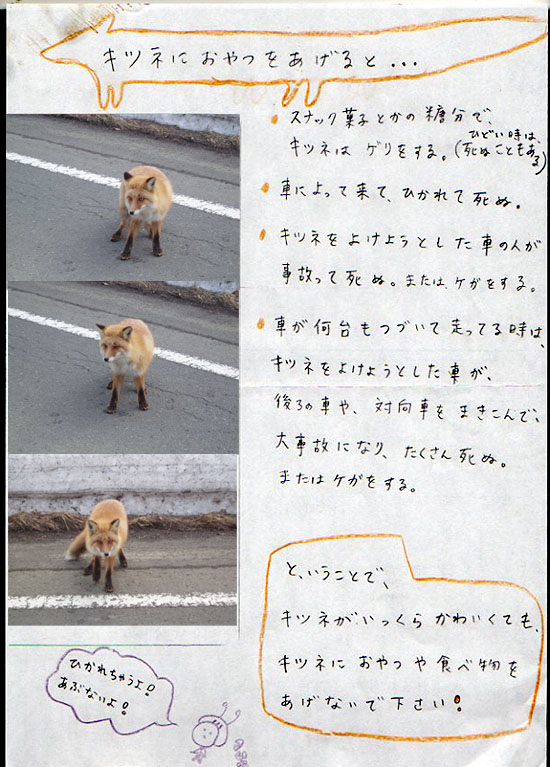 キツネにおやつをあげると...
スナック菓子とかの糖分で、
キツネはゲリをする。(ひどい時は、死ぬこともある)
車によって来て、ひかれて死ぬ。
キツネをよけようとした車の人が
事故って死ぬ。または、ケガをする。
車が何台もつづいて走ってる時は、
キツネをよけようとした車が、
後ろの車や、対向車をまきこんで、
大事故になり、たくさん死ぬ。
またはケガをする。
と、いうことで、
キツネがいっくらかわいくても、
キツネにおやつや食べ物を
あげないで下さい!
ひかれちゃうよ!
あぶないよ!